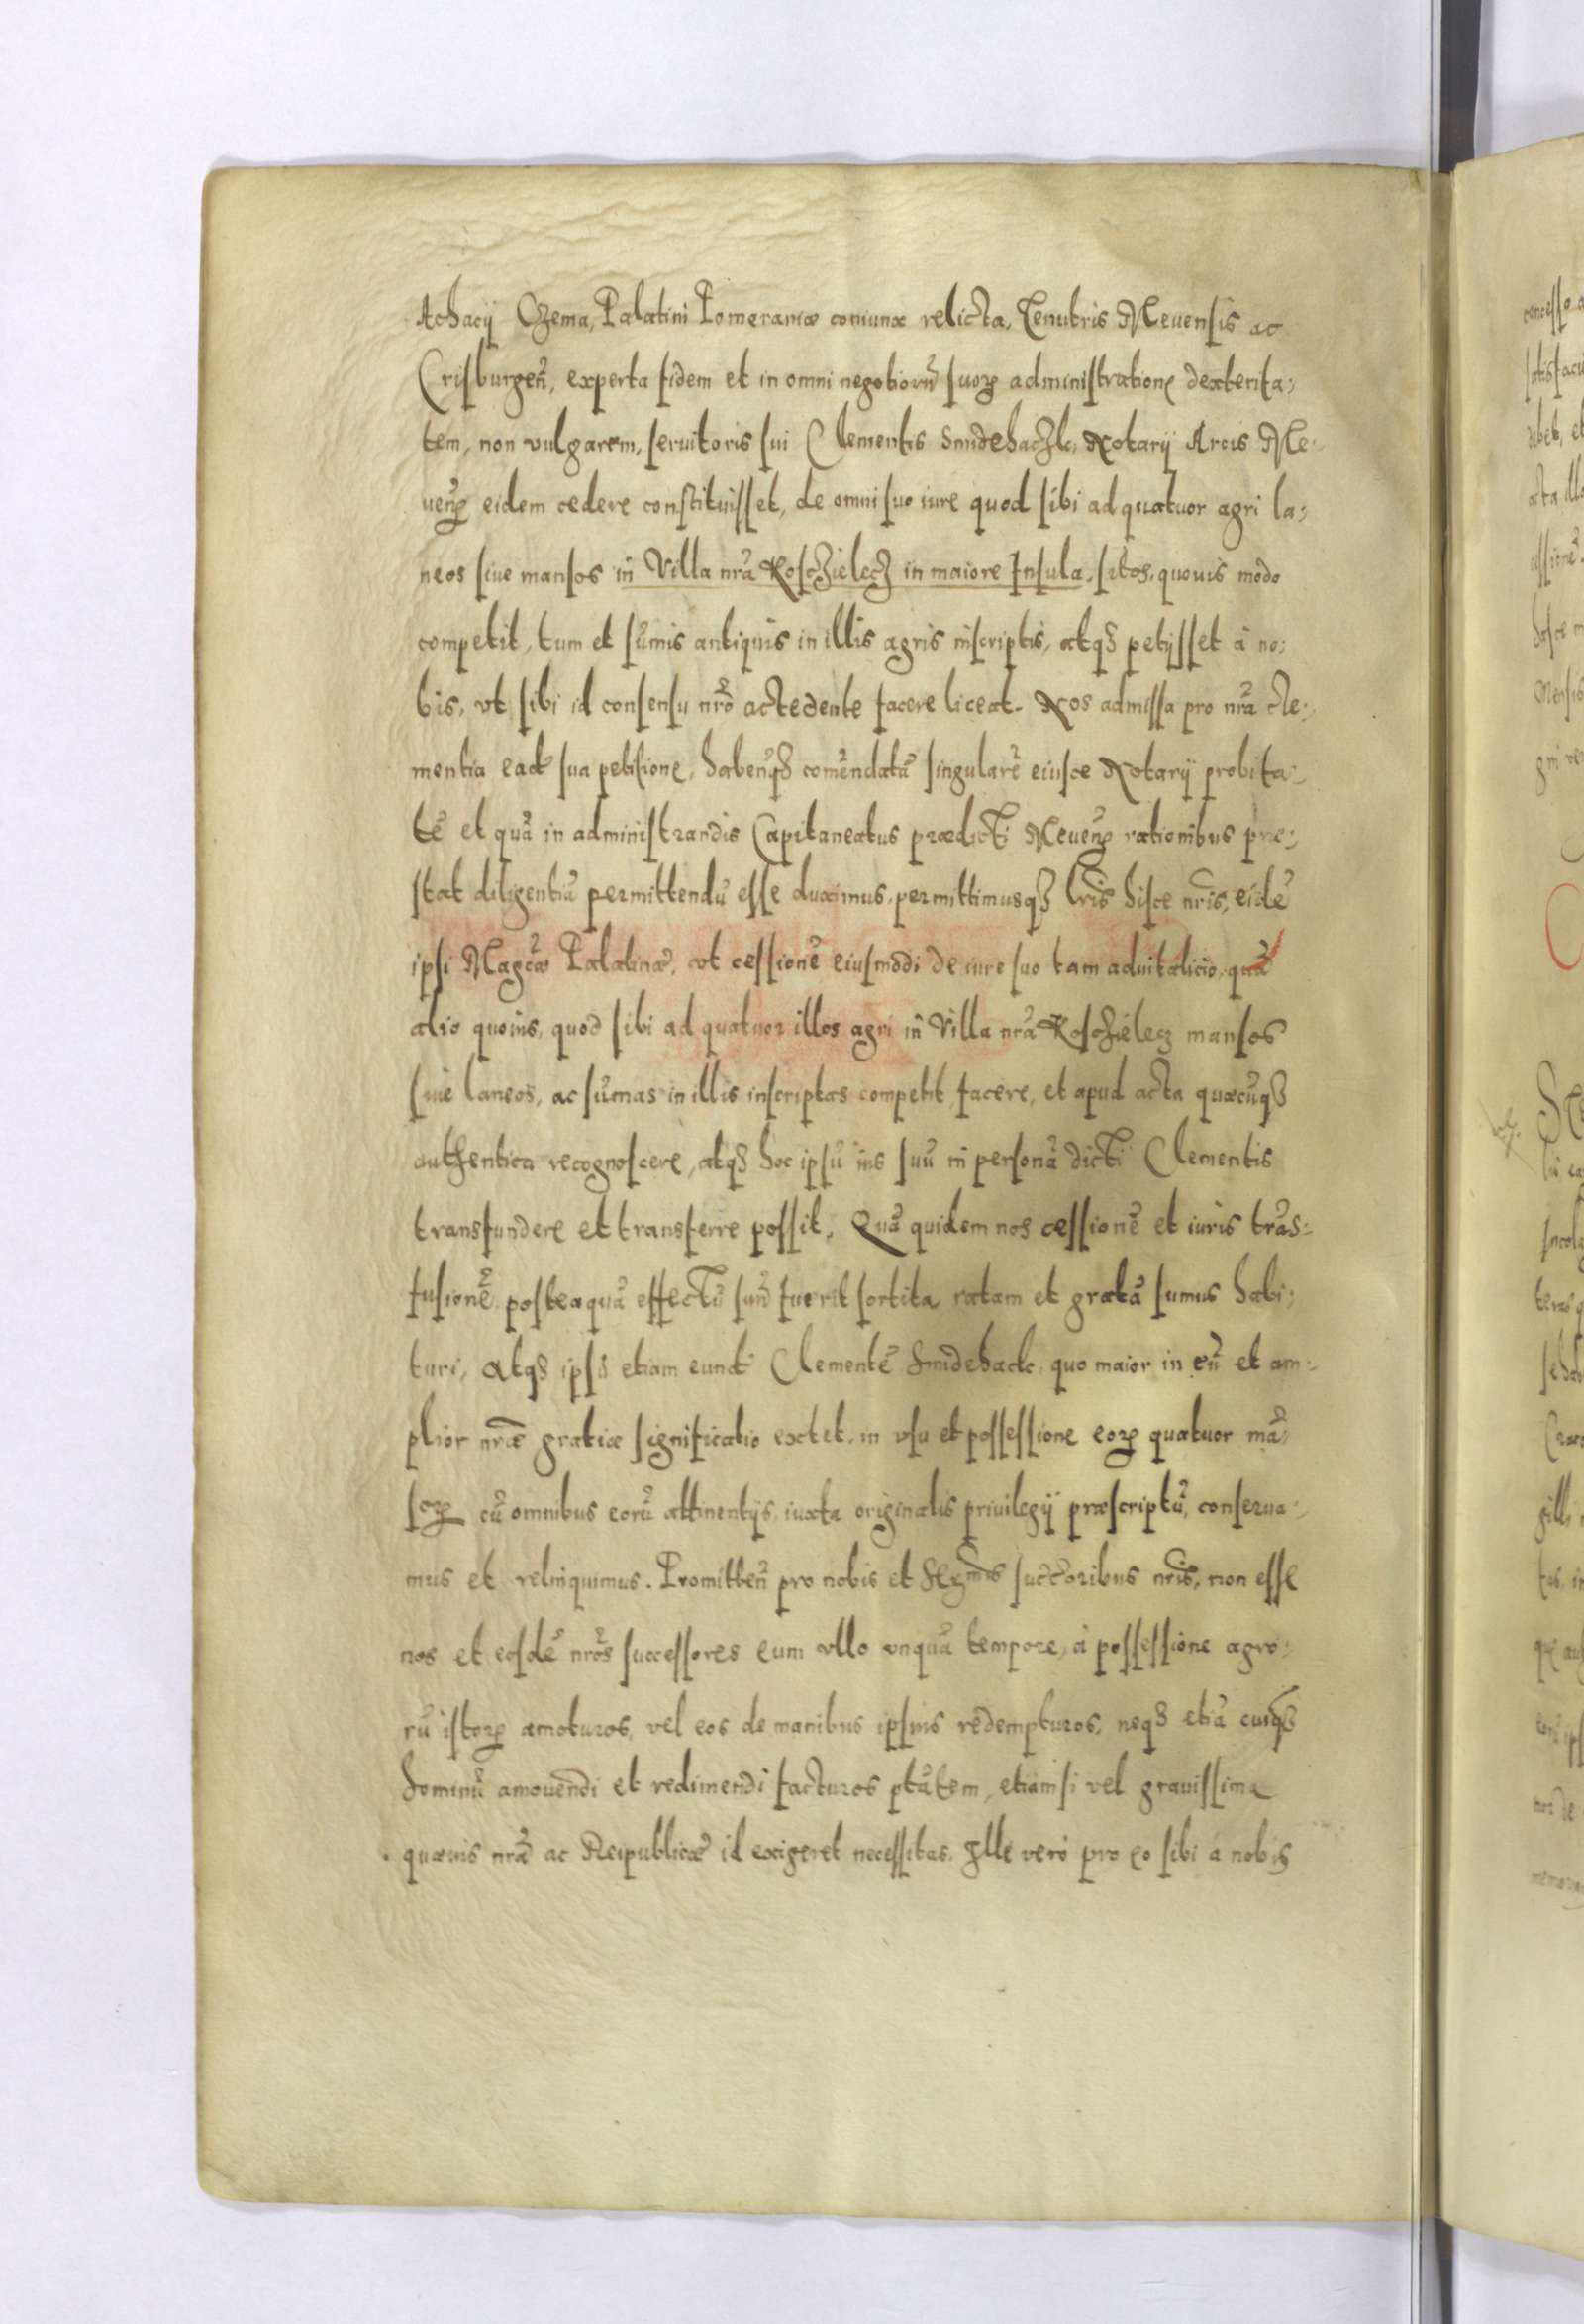 Achacÿ Czema, Palatini Pomeraniæ coniunx relicta, Tenutrix Meuensis ac
Crisburgeñ, experta fidem et in omni negotiorū suoꝝ administratione dexterita;
tem, non vulgarem, seruitoris sui Clementis Smidehaczk, Notarij Arcis Me;
ueñ, eidem cedere constituisset, de omni suo iure quod sibi ad quatuor agri la;
neos siue mansos in Villa nr̃a Kosczielecz in maiore Insula, sitos, quouis modo
competit, tum et sūmis antiquis in illis agris inscriptis, atqȝ petijsset à no;
bis, vt sibi id consensu nr̃o accedente facere liceat. Nos admissa pro nr̃a cle;
mentia ead sua petitione, habenꝭqȝ comēndatā singularē eiusce Notarij probita;
tē et quā in administrandis Capitaneatus prædicti Meueñ rationibus præ;
stat diligentiā permittendū esse duximus, permittimusqȝ lr̃is hisce nr̃is, eidē
ipsi Magcæ Palatinæ, vt cessionē eiusmodi de iure suo tam aduitalicio, quā
alio quouis, quod sibi ad quatuor illos agri in Villa nr̃a Kosczielecz mansos
siue laneos, ac sūmas in illis inscriptas competit, facere, et apud acta quæcūqȝ
authentica recognoscere, atqȝ hoc ipsū ius suū in personā dicti Clementis
transfundere et transferre possit, Quā quidem nos cessionē et iuris trās;
fusionē, posteaquā effectū suū fuerit sortita ratam et gratā sumus habi;
turi, Atqȝ ipsū etiam eund Clementē Smidehack, quo maior in eū et am;
plior nr̃æ gratiæ significatio extet, in vsu et possessione eoꝝ quatuor mā;
soꝝ cū omnibus eorū attinentijs, iuxta originalis priuilegij præscriptū, conserua;
mus et relinquimus. Promitteñ pro nobis et Serᵐⁱˢ succ̃oribus nr̃is, non esse
nos et eosdē nr̃os successores eum vllo vnquā tempore, à possessione agro;
rū istoꝝ amoturos, vel eos de manibus ipsius redempturos, neqȝ etiā cuiqȝ
hominū amouendi et redimendi facturos pt̃atem, etiamsi vel grauissima
quæuis nr̃a ac Reipublicæ id exigeret necessitas. Ille verò pro eo sibi à nobis